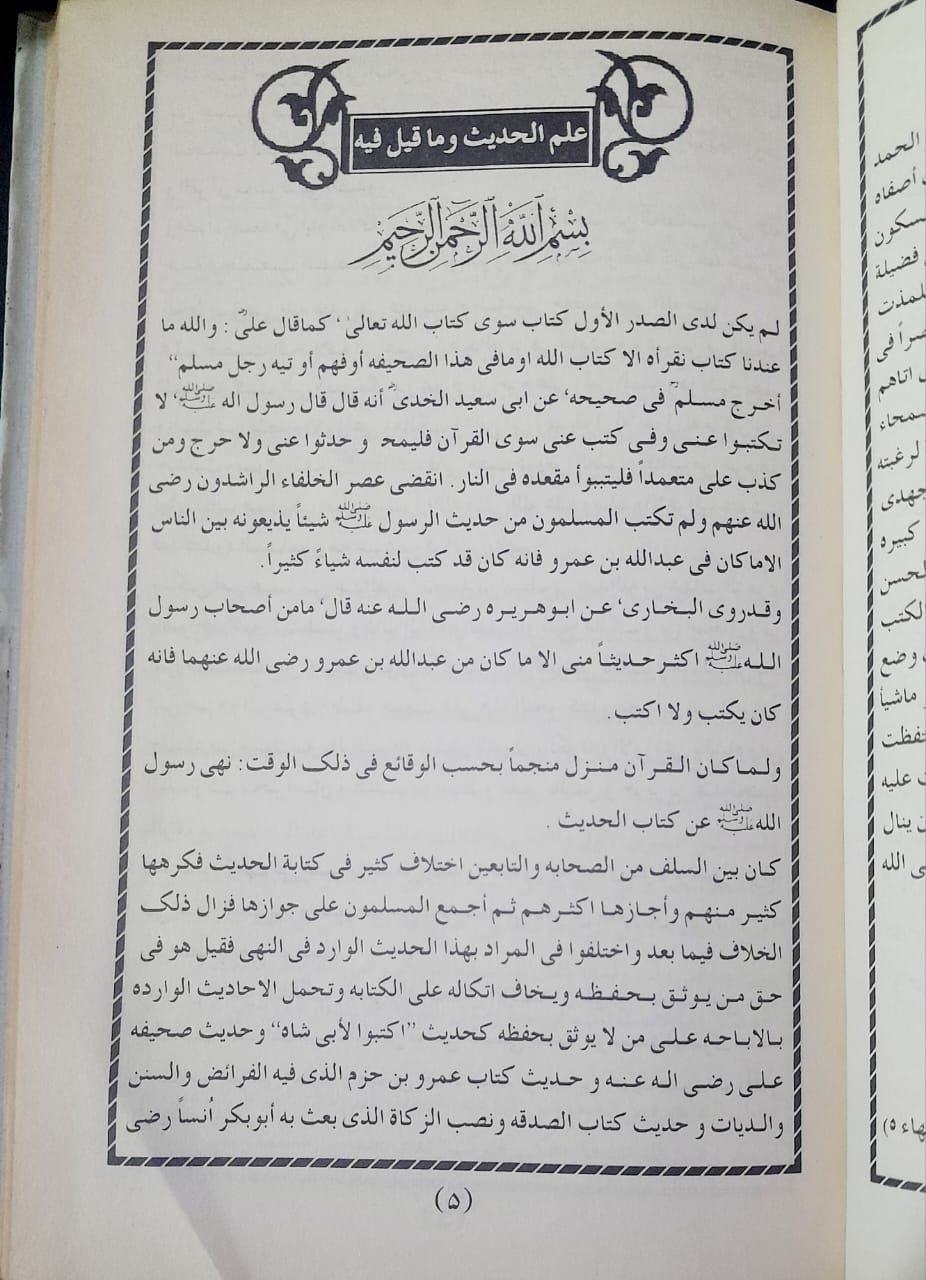 علم الحديث وما قيل فيه
بِسْمِ اللَّهِ الرَّحْمٰنِ الرَّحِيْمِ
لم يكن لدى الصدر الأول كتاب سوى كتاب الله تعالىٰ، كماقال علىؓ : والله ما
عندنا كتاب نقرأه الا كتاب الله اومافى هذا الصحيفه أوفهم أو تيه رجل مسلم“
أخرج مسلمؒ فى صحيحه، عن ابى سعيد الخدىؓ أنه قال قال رسول اله ﷺ، لا
تكتبوا عنى وفى كتب عنى سوى القرآن فليمحـ و حدثوا عنى ولا حرج ومن
كذب على متعمداً فليتبوأ مقعده فى النار. انقضى عصر الخلفاء الراشدون رضى
الله عنهم ولم تكتب المسلمون من حديث الرسول ﷺ شيئاً يذيعونه بين الناس
الاماكان فى عبدالله بن عمرو فانه كان قد كتب لنفسه شياءً كثيراً.
وقدروى البخارى، عن ابوهريره رضى الله عنه قال، مامن أصحاب رسول
اللهﷺ اكثر حديثاً منى الا ما كان من عبدالله بن عمرو رضى الله عنهما فانه
كان يكتب ولا اكتب.
ولماكان القرآن منزل منجماً بحسب الوقائع فى ذلک الوقت: نهى رسول
اللهﷺ عن كتاب الحديث .
كان بين السلف من الصحابه والتابعين اختلاف كثير فى كتابة الحديث فكرهها
كثير منهم وأجازها اكثرهم ثم أجمع المسلمون على جوازها فزال ذلک
الخلاف فيما بعد واختلفوا فى المراد بهذا الحديث الوارد فى النهى فقيل هو فى
حق من يوثق بحفظه ويخاف اتكاله على الكتابه وتحمل الاحاديث الوارده
بالاباحه على من لا يوثق بحفظه كحديث ”اكتبوا لأبى شاه“ وحديث صحيفه
على رضى اله عنه و حديث كتاب عمرو بن حزم الذى فيه الفرائض والسنن
والديات و حديث كتاب الصدقه ونصب الزكاة الذى بعث به أبوبكر اُنساً رضى
(۵)
الحمد
أصفاه
سكون
فضيلة
لمذت
صراً فى
اتاهم
سمحاء
لرغبته
جهدى
كبيره
لحسن
الكتب
وضع
ماشيأ
تفظت
عليه
ن ينال
ى الله
هاء ۵)